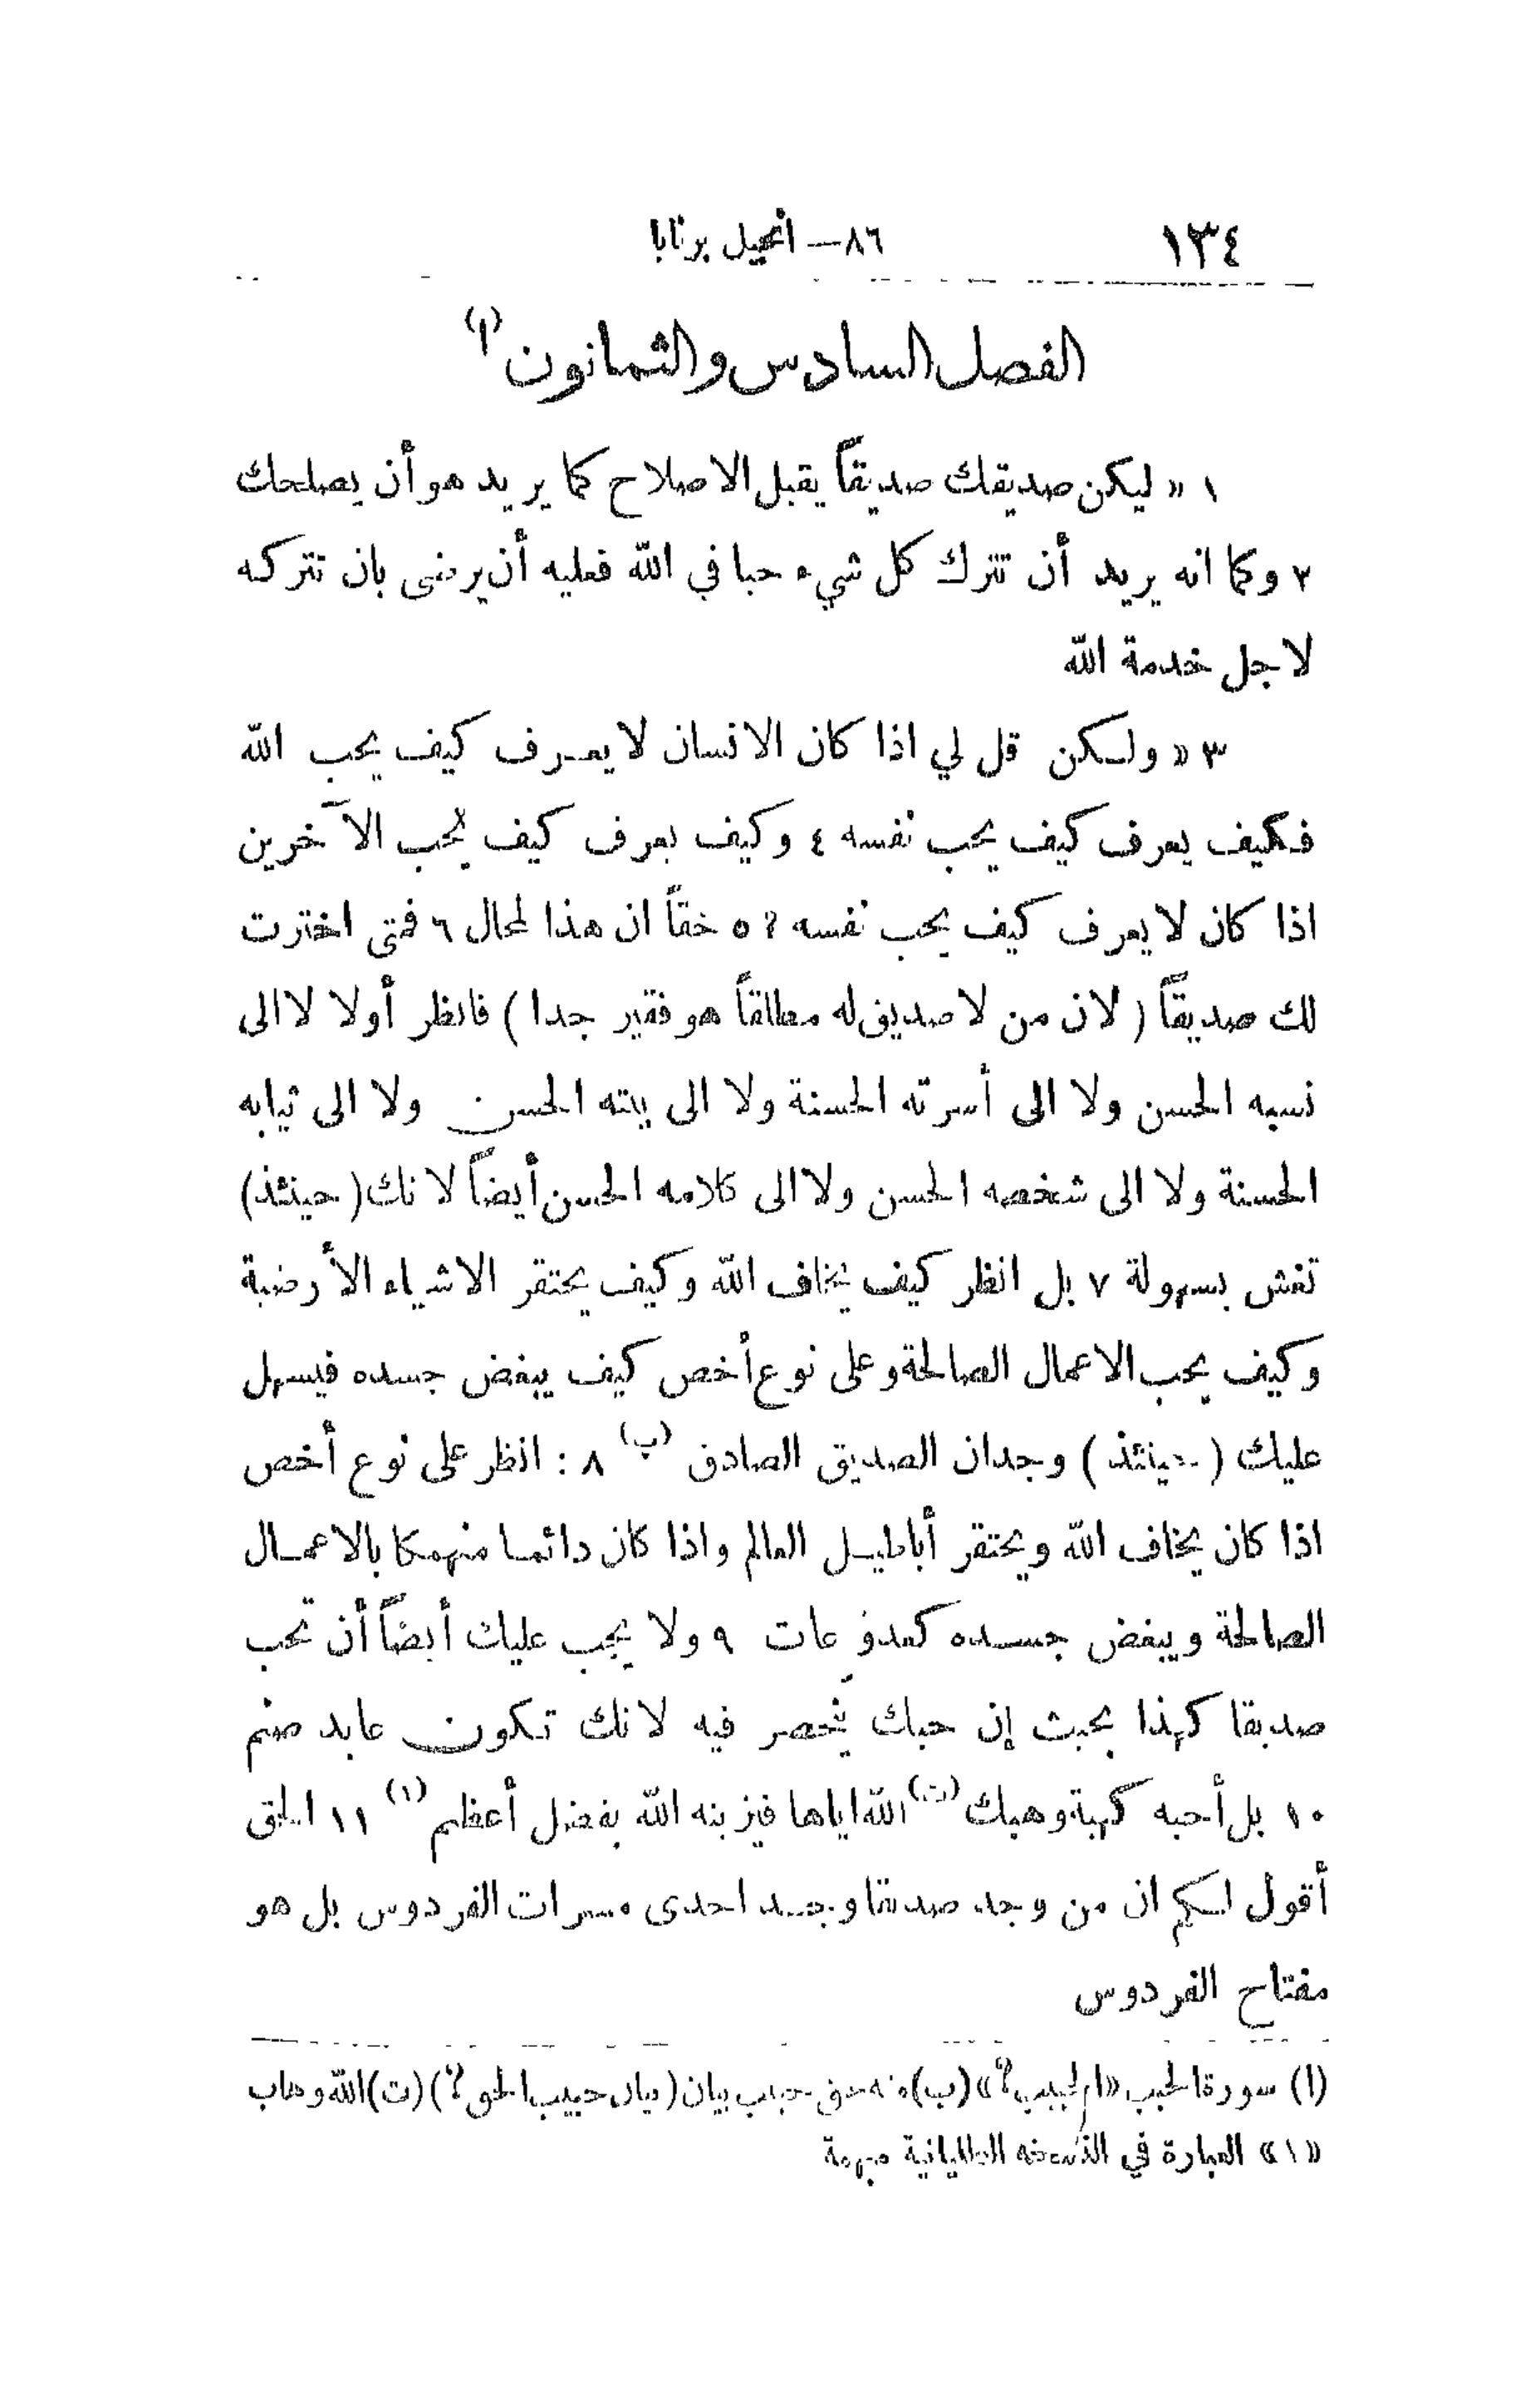 ١٣٤ ٨٦— انجيل برنابا
الفصل السادس والثمانون (ا)
١ « ليكن صديقك صديقاً يقبل الاصلاح كما يريد هو أن يصلحك
٢ وكما انه يريد أن تترك كل شيء حبا في الله فعليه أن يرضى بان تتركه
لاجل خدمة الله
٣ « ولكن قل لي اذا كان الانسان لا يعرف كيف يحب الله
فكيف يعرف كيف يحب نفسه ٤ وكيف يعرف كيف يُحب الآخرين
اذا كان لا يعرف كيف يحب نفسه ؟ ٥ حقاً ان هذا لمحال ٦ فمتى اخترت
لك صديقاً ( لان من لا صديق له مطلقاً هو فقير جدا ) فانظر أولا لا الى
نسبه الحسن ولا الى أسرته الحسنة ولا الى بيته الحسن ولا الى ثيابه
الحسنة ولا الى شخصه الحسن ولا الى كلامه الحسن أيضاً لانك ( حينئذ )
تغش بسهولة ٧ بل انظر كيف يخاف الله وكيف يحتقر الاشياء الأرضية
وكيف يحب الاعمال الصالحة وعلى نوع أخص كيف يبغض جسده فيسهل
عليك ( حينئذ ) وجدان الصديق الصادق (ب) ٨ : انظر على نوع أخص
اذا كان يخاف الله ويحتقر أباطيل العالم واذا كان دائما منهمكا بالاعمال
الصالحة ويبغض جسده كعدو عات ٩ ولا يجب عليك أيضاً أن تحب
صديقا كهذا بحيث إن حبك ينحصر فيه لانك تكون عابد صنم
١٠ بل أحبه كهبة وهبك (ت) الله اياها فيزينه الله بفضل أعظم (١) ١١ الحق
أقول لكم ان من وجد صديقا وجد احدى مسرات الفردوس بل هو
مفتاح الفردوس
(ا) سورة الحبيب « ام لحبيب ؟ » (ب) منه حق حبيب بيان ( بيان حبيب الحق ؟ ) (ت) الله وهاب
« ١ » العبارة في النسخه الطليانية مبهمة